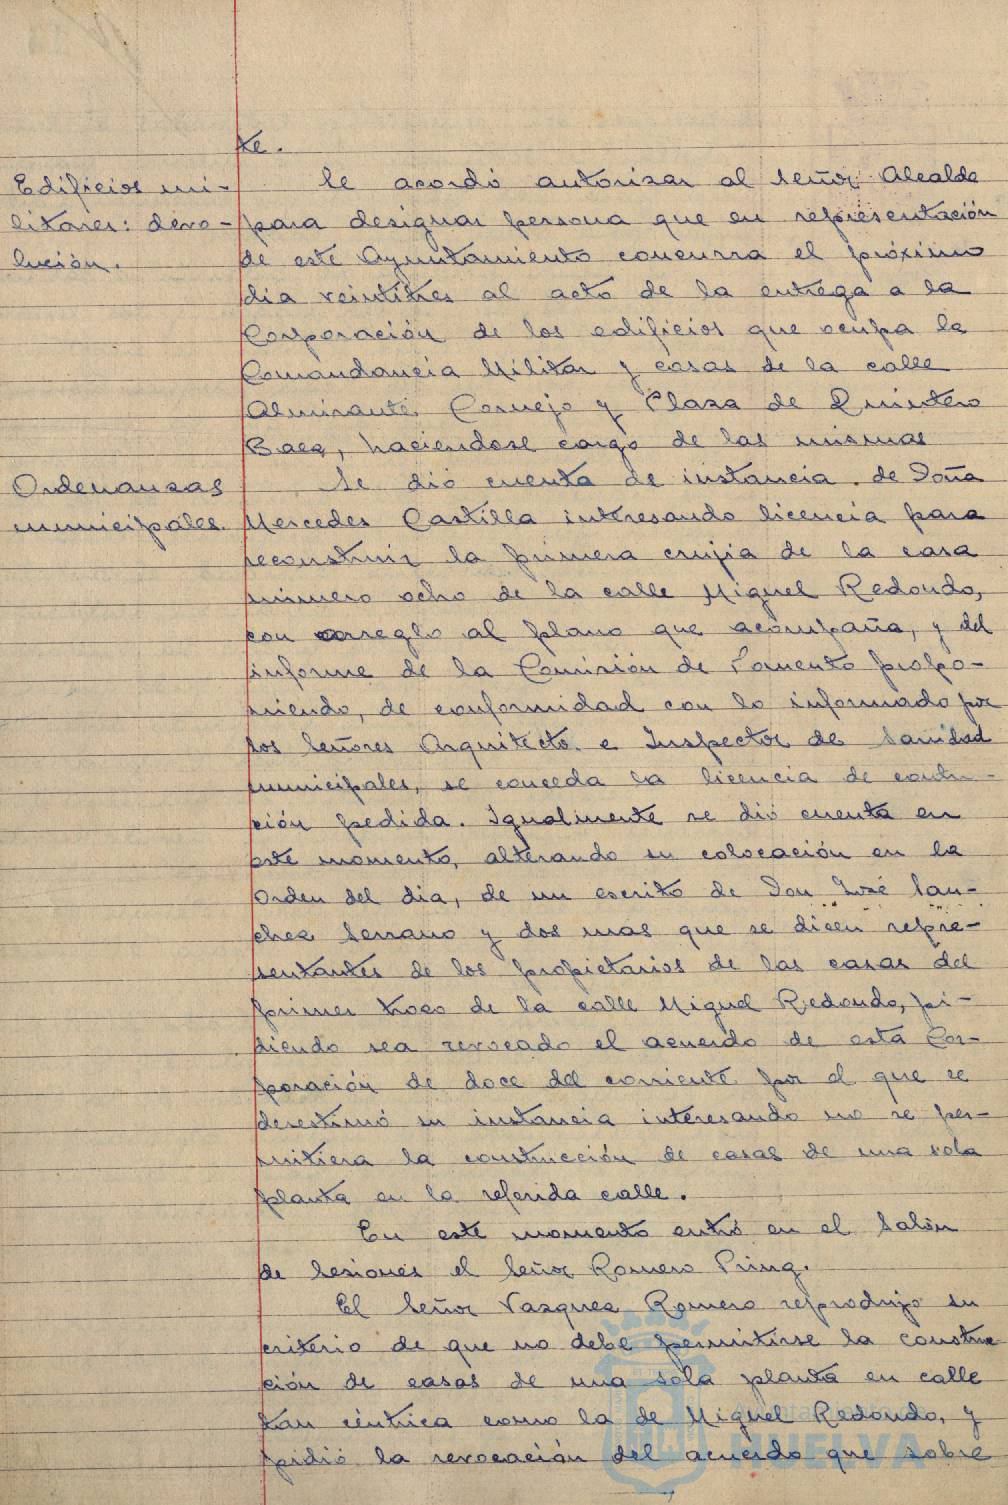 te.
Edificios mi-
litares: devo-
lución.
Se acordó autorizar al Señor Alcalde
para designar persona que en representación
de este Ayuntamiento concurra el próximo
dia veintitres al acto de la entrega a la
Corporación de los edificios que ocupa la
Comandancia Militar y casas de la calle
Almirante Cornejo y Plaza de Quintero
Baez, haciendose cargo de las mismas
Ordenanzas
municipales.
Se dió cuenta de instancia de Doña
Mercedes Castilla interesando licencia para
reconstruir la primera crujia de la casa
número ocho de la calle Miguel Redondo,
con arreglo al plano que acompaña, y del
informe de la Comisión de Fomento propo-
niendo, de conformidad con lo informado por
los Señores Arquitecto e Inspector de Sanidad
municipales, se conceda la licencia de contru-
ción pedida. Igualmente se dió cuenta en
este momento, alterando su colocación en la
Orden del dia, de un escrito de Don José San-
chez Serrano y dos mas que se dicen repre-
sentantes de los propietarios de las casas del
primer trozo de la calle Miguel Redondo, pi-
diendo sea revocado el acuerdo de esta Cor-
poración de doce del corriente por el que se
desestimó su instancia interesando no se per-
mitiera la construcción de casas de una sola
planta en la referida calle.
En este momento entró en el Salón
de Sesiones el Señor Romero Pring.
El Señor Vazquez Romero reprodujo su
criterio de que no debe permitirse la constru
ción de casas de una sola planta en calle
tan céntrica como la de Miguel Redondo, y
pidió la revocación del acuerdo que sobre
Ayuntamiento de
HUELVA